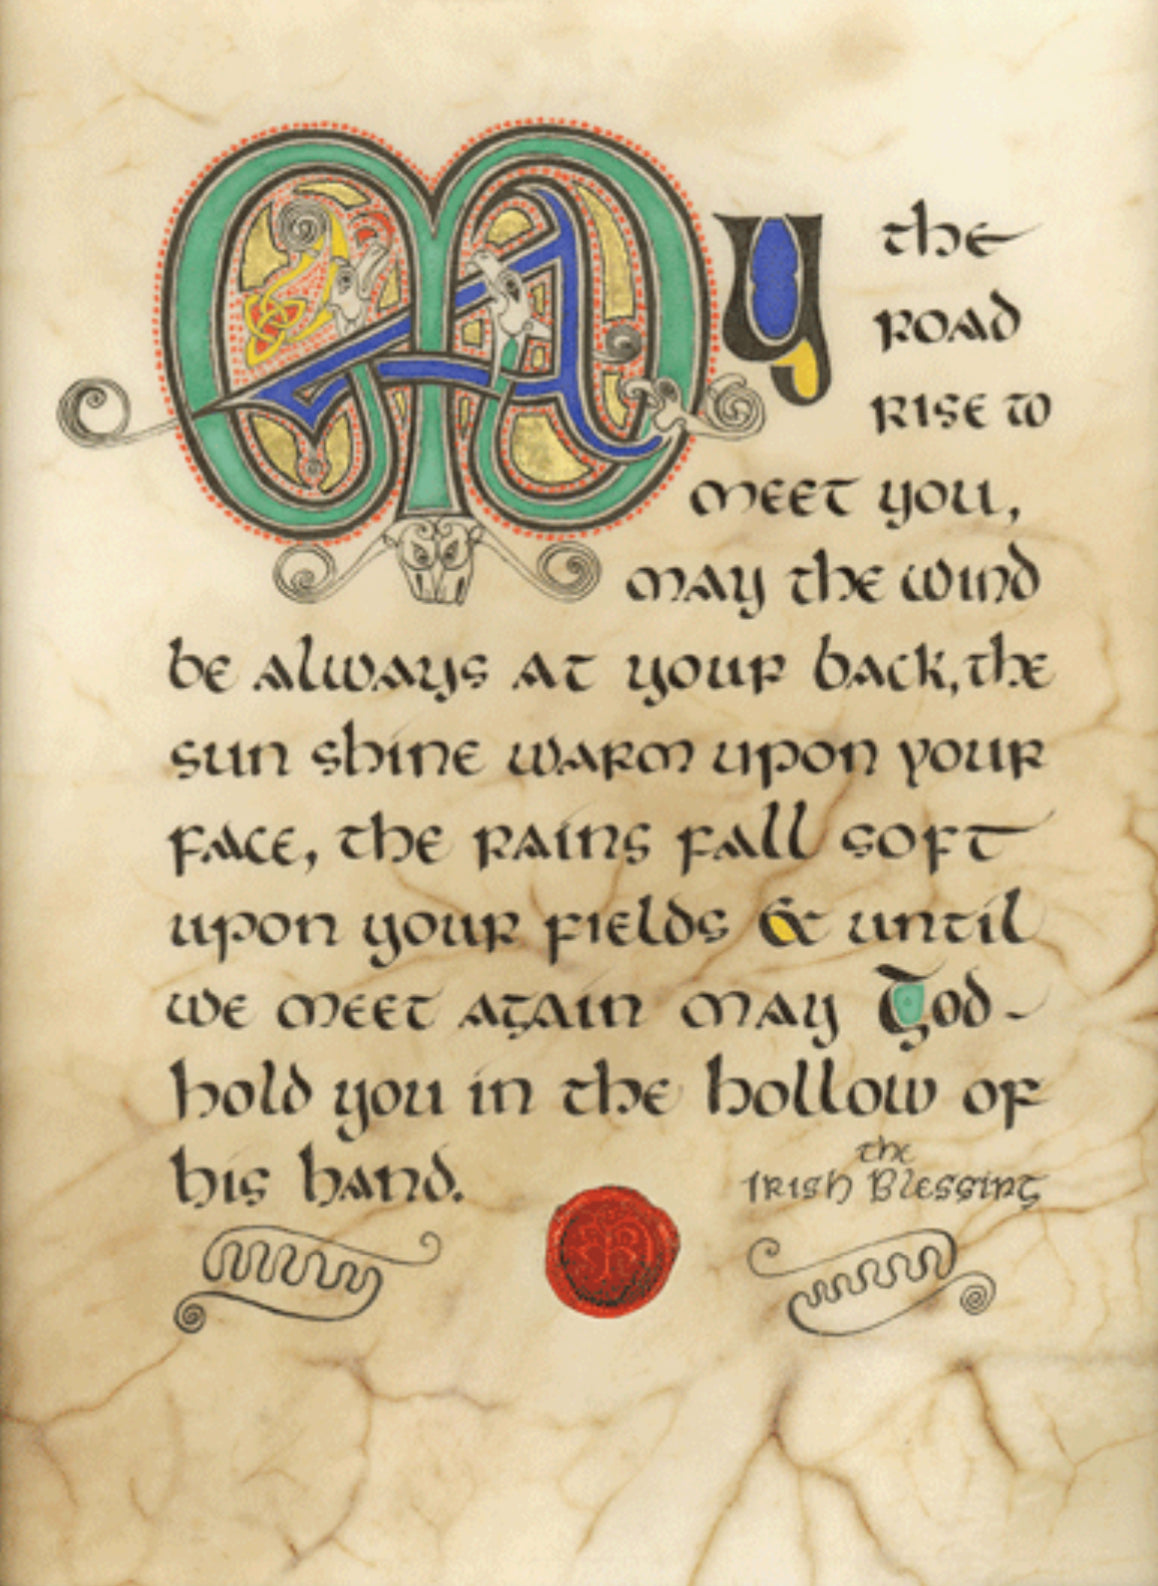 May the
road
rise to
meet you,
may the wind
be always at your back, the
sun shine warm upon your
face, the rains fall soft
upon your fields & until
we meet again may God-
hold you in the hollow of
his hand.
the
Irish Blessing